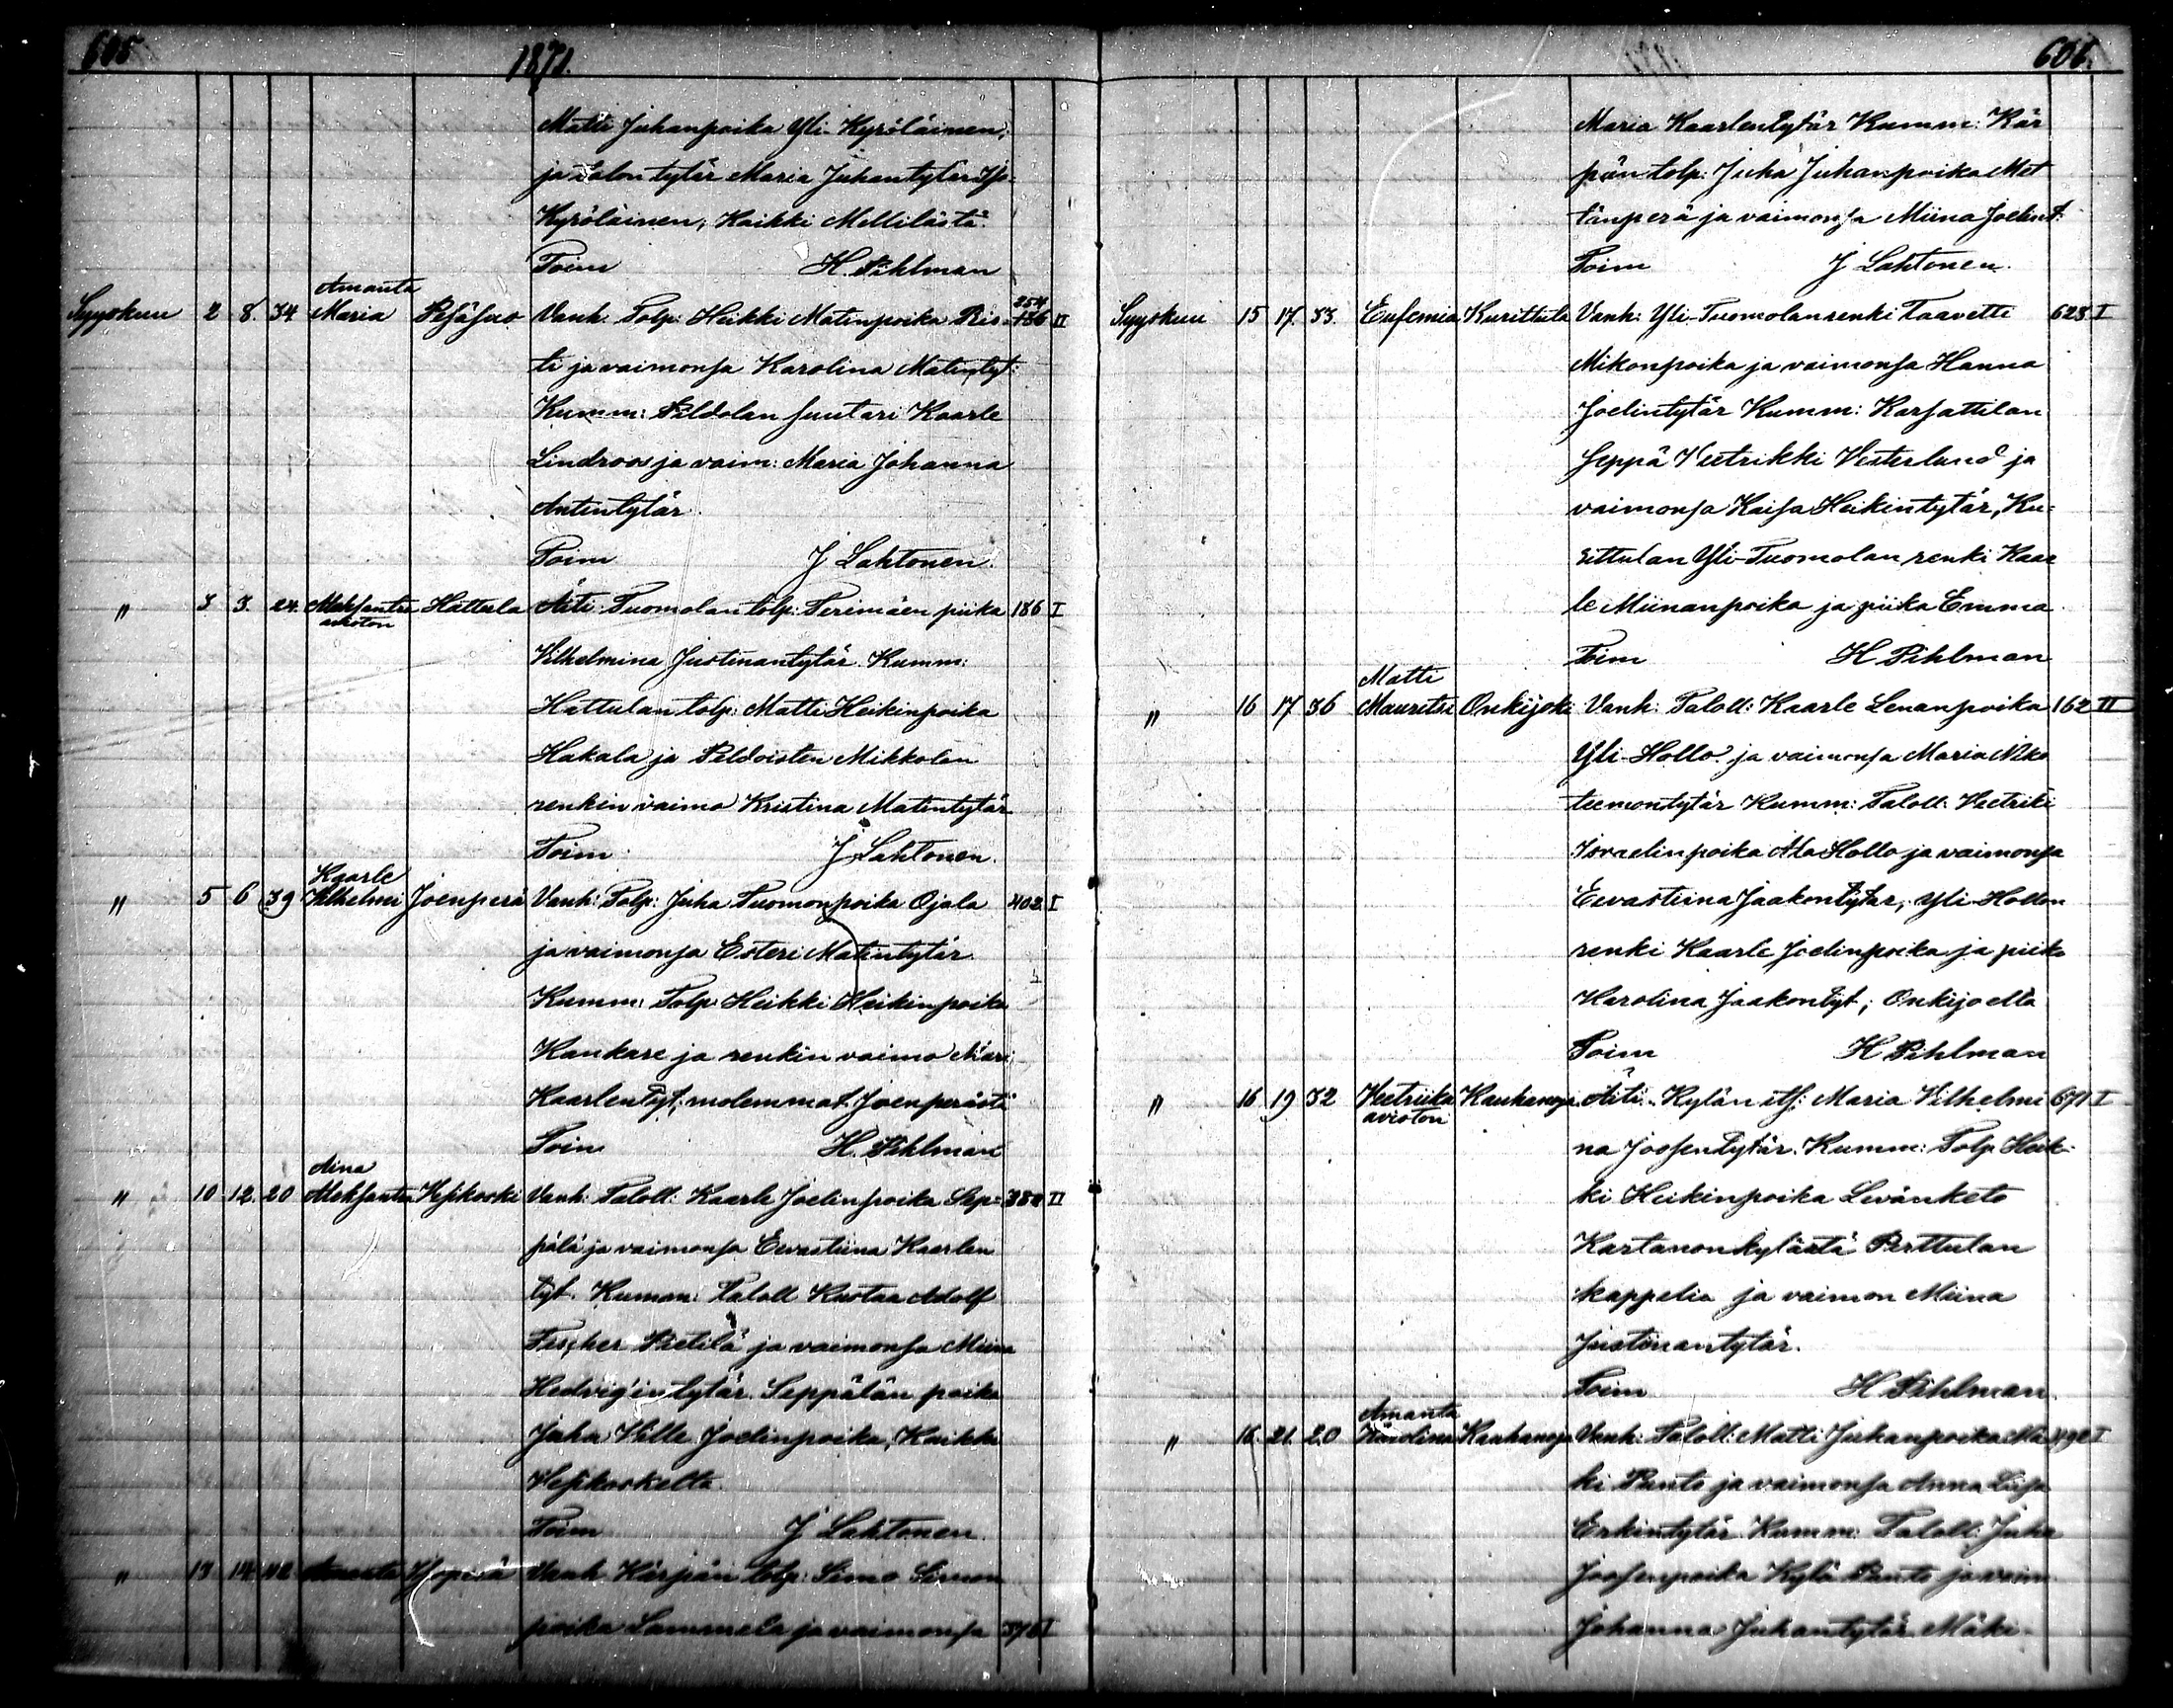 605
1871.
Matti Juhanpoika Yli Kyröläinen,
ja talon tytär Maria Juhantytär Iso-
Kyröläinen, Kaikki Mellilästä.
Toim H. Pihlman
Amanta
Syyskuu 2 8. 34 Maria Vanh. Tolp: Heikki Matinpoika Ris- 254 186 II
ti ja vaimonsa Karolina Matintyt:
Kumm: Peldolan suutari Kaarle
Lindroos ja vaim: Maria Johanna
Antintytär.
Toim J Lahtonen.
" 3 3. 24 Aleksantra Hattula Äiti: Tuomolan tolp: Perimäen piika 186 I
avioton
Vilhelmina Justinantytär. Kumm:
Hattulan tolp: Matti Heikinpoika
Hakala ja Peldoisten Mikkolan
renkin vaimo Kristina Matintytär
Toim J. Lahtonen.
Kaarle
" 5 6 39 Vilhelmi Joenperä Vanh: Tolp: Juha Tuomonpoika Ojala 402 I
ja vaimonsa Esteri Matintytär
Kumm: Tolp: Heikki Heikinpoika
Kankare ja renkin vaimo Mari
Kaarlentyt; molemmat Joenperästä
Toim H. Pihlman
Aina
" 10 12. 20 Aleksantra Vesikoski Vanh: Taloll: Kaarle Joelinpoika Sep- 382 II
pälä ja vaimonsa Eevastiina Kaarlen
tyt. Kumm: Taloll Kustaa Adolf
Fischer Pietilä ja vaimonsa Miina
Hedvig'in tytär. Seppälän poika
Juha Ville Joelinpoika, Kaikki
Vesikoskelta.
Toim J Lahtonen.
" 13 14 42 Amanta Isoperä Vanh. Kärpän tolp: Simo Simon
poika Lammela ja vaimonsa 376 I
606.
Maria Kaarlentytär Kumm: Kär
pän tolp: Juha Juhanpoika Met
tänperä ja vaimonsa Miina Joelint:
Toim J Lahtonen.
Syyskuu 15 17. 33. Eufemia Kurittula Vanh: Yli-Tuomolan renki Taavetti 623 I
Mikonpoika ja vaimonsa Hanna
Joelintytär Kumm: Karsattilan
seppä Veetrikki Vesterlund ja
vaimonsa Kaisa Heikintytär, Ku-
rittulan Yli-Tuomolan renki Kaar
le Miinanpoika ja piika Emma
Toim H Pihlman
Matti
" 16 17 36 Mauritsi Onkijoki Vanh: Taloll: Kaarle Lenanpoika 162 II
Yli-Hollo ja vaimonsa Maria Niko
teemontytär Kumm: Taloll: Veetriki
Israelinpoika Ala Hollo ja vaimonsa
Eevastiina Jaakontytär, Yli-Hollon
renki Kaarle Joelinpoika ja piika
Karolina Jaakontyt; Onkijoelta
Toim H Pihlman
" 16 19 32 Veetriika Kauhanoja Äiti: Kylän its: Maria Vilhelmi 671 I
avioton
na Joosentytär. Kumm: Tolp Heik-
ki Heikinpoika Levänketo
Kartanonkylästä Perttulan
kappelia ja vaimon Miina
Justiinantytär.
Toim H Pihlman.
Amanta
" 16 21. 20 Karolina Kauhanoja Vanh: Taloll: Matti Juhanpoika Mä I
ki Punto ja vaimonsa Anna Liisa
Erkintytär Kumm: Taloll: Juha
Joosenpoika Kylä Punto ja vaim
Johanna Juhantytär Mäki-